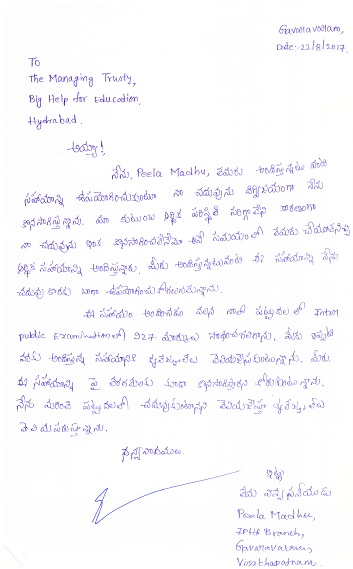 Gavaravaram,
Date:-22/8/2017.
To
The Managing Trusty,
Big Help for Education,
Hydrabad.
అయ్యా!
నేను, Peela Madhu, తమరు అందిస్తున్నటువంటి
సహాయాన్ని ఉపయోగించుకుంటూ నా చదువును నిర్విఘ్నంగా నేను
కొనసాగిస్తున్నాను. మా కుటుంబ ఆర్థిక పరిస్థితి సరిగ్గా లేని కారణంగా
నా చదువును ఇంక కొనసాగించలేనేమో అనే సమయంలో తమరు
ఆర్థిక సహాయాన్ని అందిస్తున్నారు. మీరు అందిస్తున్నటువంటి ఈ సహాయాన్ని నేను
చదువు కొరకు బాగా ఉపయోగించుకోగలుగుతున్నాను.
ఈ సహాయం అందించడం వలన నాలో పట్టుదలతో Inter
public Examination లో 927 మార్కులు సాధించగలిగాను. మీరు ఇప్పటి
వరకు అందిస్తున్న సహాయానికి కృతజ్ఞతలు తెలియజేసుకుంటున్నాను. మీరు
ఈ సహాయాన్ని పై తరగతులకు కూడా కొనసాగిస్తారని కోరుకుంటున్నాను.
నేను మరింత పట్టుదలతో చదువుకుంటానని తెలియజేస్తూ కృతజ్ఞతలు
తెలియపరుస్తున్నాను.
ధన్యవాదములు.
ఇట్లు
తమ విన్నపనీయుడు
Peela Madhu,
ZPHS Branch,
Gavaravaram,
Visakhapatnam.